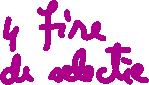 4 fire
de selectie